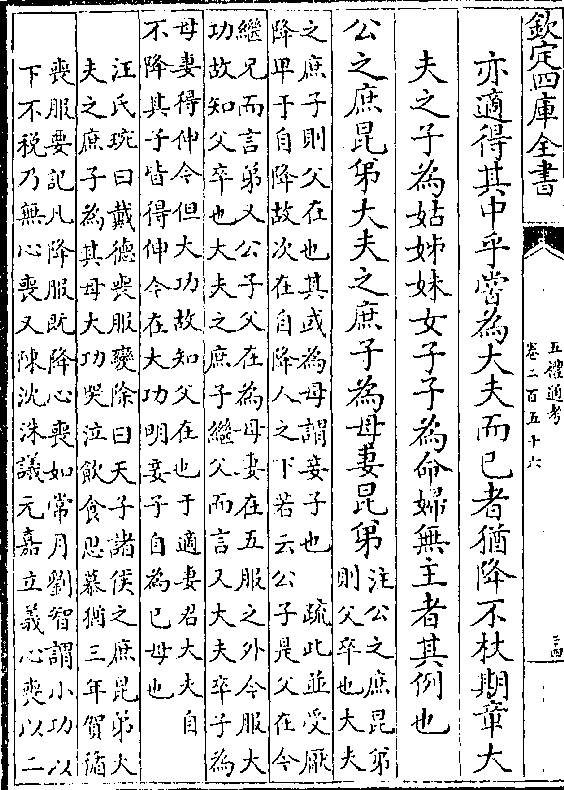 欽定四庫全書
五禮通考
卷二百五十六
二四
亦適得其中乎嘗為大夫而已者猶降不杖期章大
夫之子為姑姊妹女子子為命婦無主者其例也
公之庶昆弟大夫之庶子為母妻昆弟
注公之庶昆弟
則父卒也大夫
之庶子則父在也其或為母謂妾子也　疏此並受厭
降卑于自降故次在自降人之下若云公子是父在今
繼兄而言弟又公子父在為母妻在五服之外今服大
功故知父卒也大夫之庶子繼父而言又大夫卒子為
母妻得伸今但大功故知父在也于適妻君大夫自
不降其子皆得伸今在大功明妾子自為已母也
汪氏琬曰戴德喪服變除曰天子諸侯之庶昆弟大
夫之庶子為其母大功哭泣飲食思慕猶三年賀循
喪服要記凡降服既降心喪如常月劉智謂小功以
下不税乃無心喪又陳沈洙議元嘉立義心喪以二